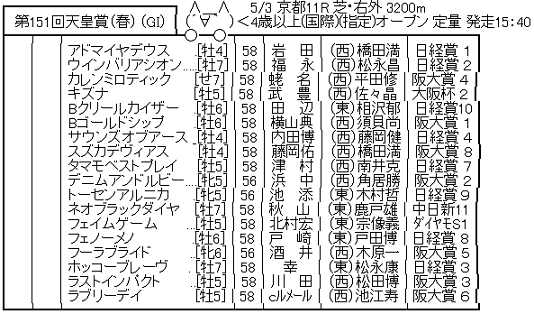 第151回天皇賞(春)(GI) 5/3 京都11R 芝・右外 3200m
(´∀`)＜4歳以上(国際)(指定)オープン 定量 発走15:40
アドマイヤデウス ‥[牡4] 58 岩 田 (西)橋田満 日経賞 1
ウインバリアシオン‥‥[牡7] 58 福 永 (西)松永昌 日経賞 2
カレンミロティック ‥[せ7] 58 蛯 名 (西)平田修 阪大賞 4
キズナ [牡5] 58 武 豊 (西)佐々晶 大阪杯 2
Bクリールカイザー ‥[牡6] 58 田 辺 (東)相沢郁 日経賞10
Bゴールドシップ ‥[牡6] 58 横山典 (西)須貝尚 阪大賞 1
サウンズオブアース ‥[牡4] 58 内田博 (西)藤岡健 日経賞 4
スズカデヴィアス ‥[牡4] 58 藤岡佑 (西)橋田満 阪大賞 8
タマモベストプレイ ‥[牡5] 58 津 村 (西)南井克 日経賞 7
デニムアンドルビー‥‥[牝5] 56 浜 中 (西)角居勝 阪大賞 2
トーセンアルニカ ‥[牝5] 56 池 添 (東)木村哲 日経賞 9
ネオブラックダイヤ ‥[牡7] 58 秋 山 (東)鹿戸雄 中日新11
フェイムゲーム ‥[牡5] 58 北村宏 (東)宗像義 ダイヤモS1
フェノーメノ ‥[牡6] 58 戸 崎 (東)戸田博 日経賞 8
フーラブライド ‥[牝6] 56 酒 井 (西)木原一 阪大賞 5
ホッコーブレーヴ ‥[牡7] 58 幸 (東)松永康 日経賞 3
ラストインパクト ‥[牡5] 58 川 田 (西)松田博 阪大賞 3
ラブリーデイ ‥[牡5] 58 cルメール (西)池江寿 阪大賞 6